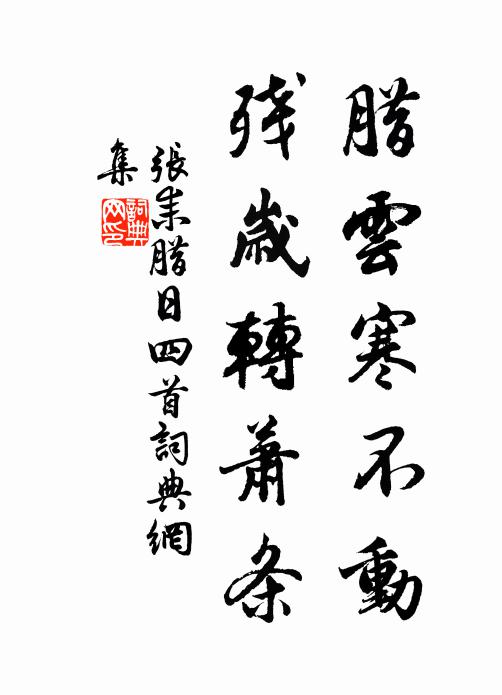 腊雲寒不動
残歲轉蕭条
張耒腊日四首詞典網
集
詞典
网印